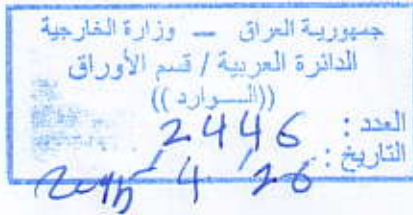 جمهورية العراق — وزارة الخارجية
الدائرة العربية / قسم الأوراق
((السوارد))
العدد : 2446
التاريخ : 26 / 4 /